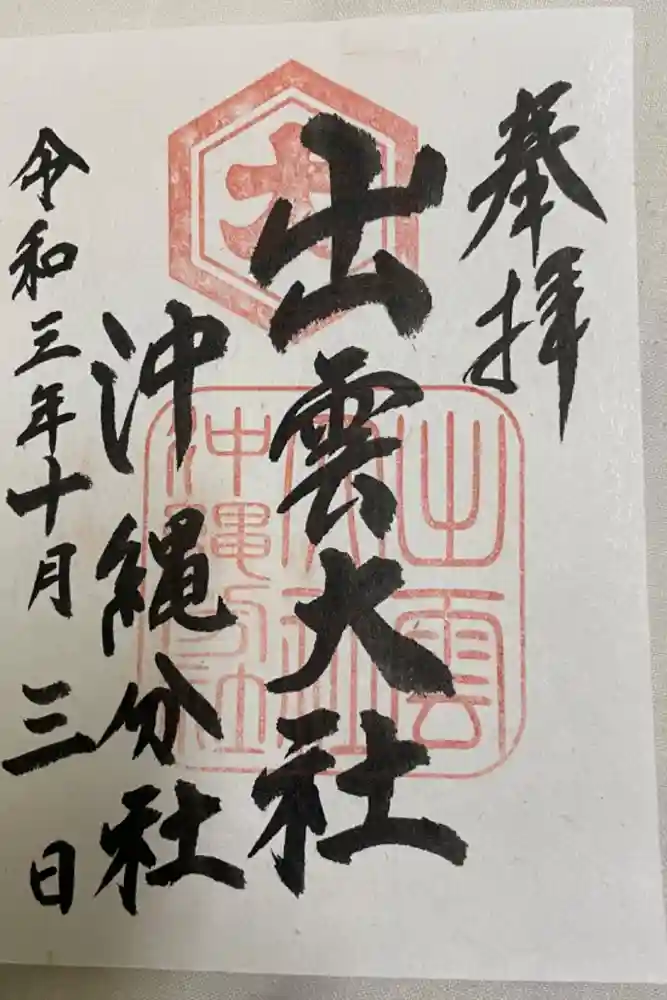 奉拝
出雲大社
沖縄分社
令和三年十月三日
大
出雲
大社
沖縄分社